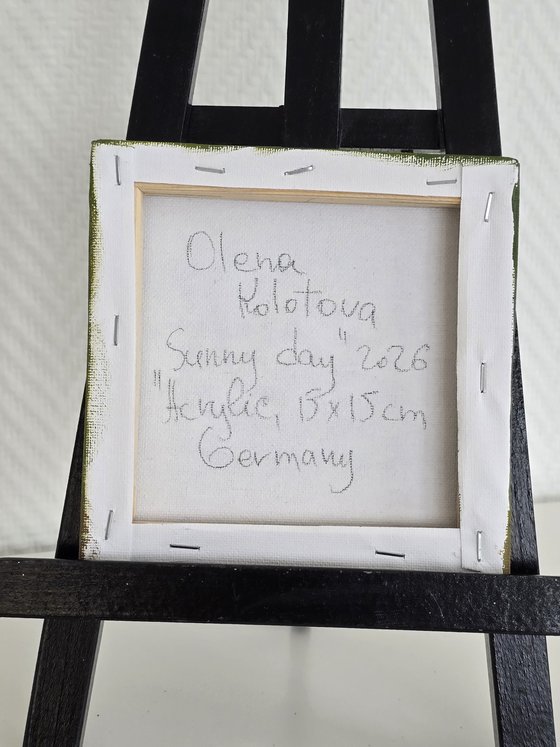 Olena
Kolotova
Sunny day" 2026
"Acrylic, 15x15cm,
Germany